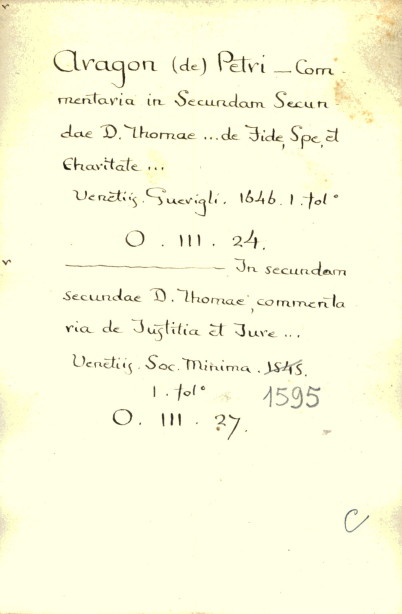 Aragon (de) Petri — Com-
mentaria in Secundam Secun-
dae D. Thomae ... de Fide, Spe, et
Charitate ...
Venetiis. Guerigli. 1646. 1. fol°
O. III. 24.
———— In secundam
secundae D. Thomae, commenta
ria de Iustitia et Iure ...
Venetiis. Soc. Minima. 1845.
1. fol° 1595
O. III. 27.
C